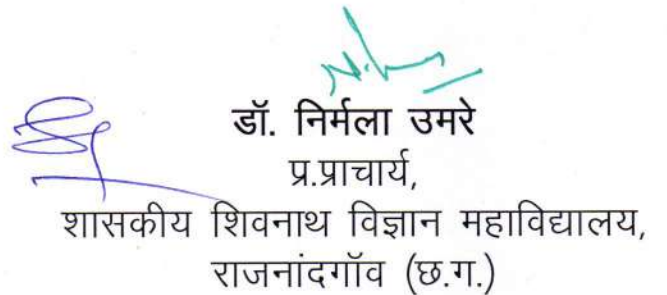 डॉ. निर्मला उमरे
प्र.प्राचार्य,
शासकीय शिवनाथ विज्ञान महाविद्यालय,
राजनांदगॉव (छ.ग.)